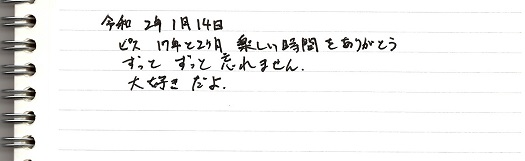 令和 2年 1月14日
ピス 17年と2ヶ月 楽しい時間をありがとう
ずっと ずっと 忘れません.
大好き だよ.